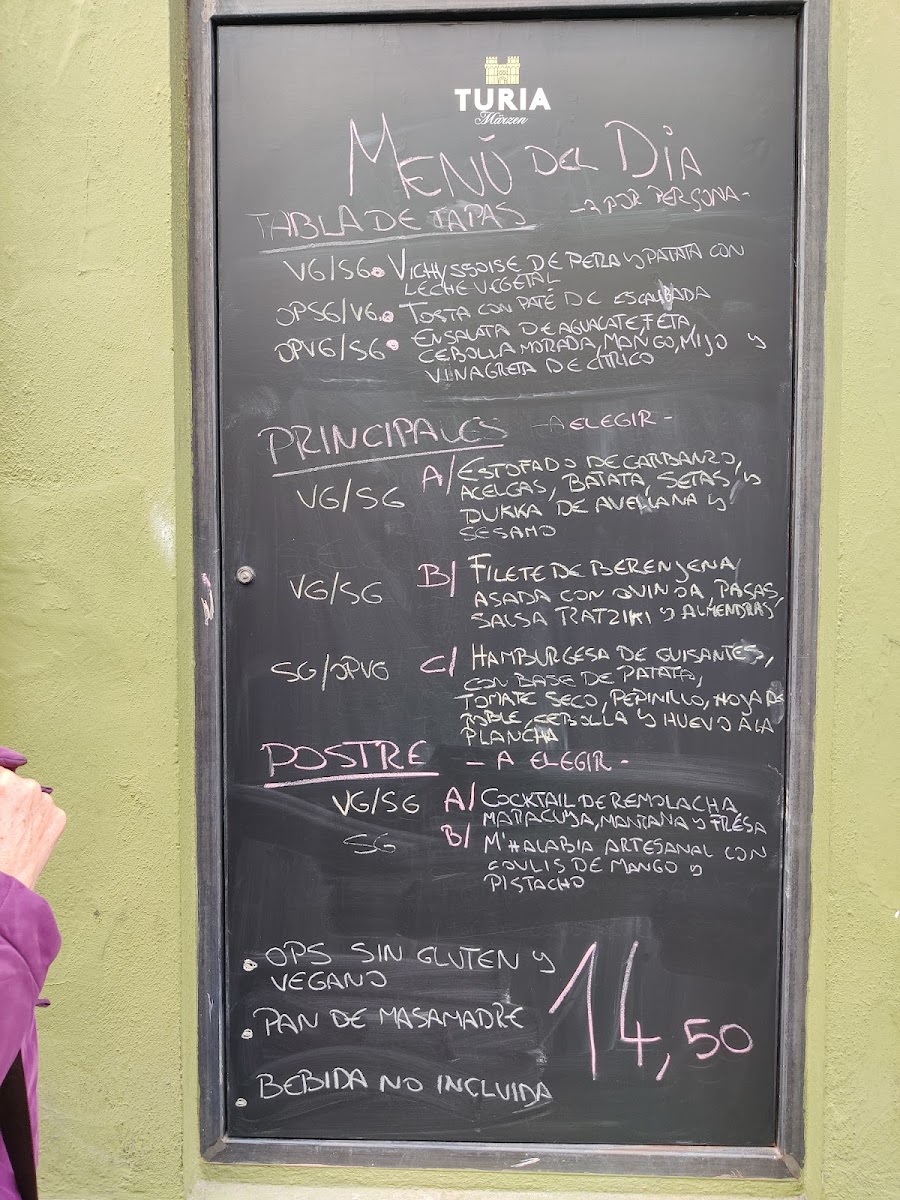 TURIA
Märzen
MENÚ DEL DÍA
TABLA DE TAPAS - 3 POR PERSONA -
VG/SG • VICHYSSOISE DE PERA Y PATATA CON
LECHE VEGETAL
OPSG/VG • TOSTA CON PATÉ DE ESCALIBADA
OPVG/SG • ENSALATA DE AGUACATE, FETA,
CEBOLLA MORADA, MANGO, MIJO Y
VINAGRETA DE CITRICO
PRINCIPALES - A ELEGIR -
VG/SG A/ ESTOFADO DE GARBANZO,
ACELGAS, BATATA, SETAS Y
DUKKA DE AVELLANA Y
SESAMO
VG/SG B/ FILETE DE BERENJENA
ASADA CON QUINOA, PASAS,
SALSA TZATZIKI Y ALMENDRAS
SG/OPVG C/ HAMBURGESA DE GUISANTES,
CON BASE DE PATATA,
TOMATE SECO, PEPINILLO, HOJA DE
ROBLE, CEBOLLA Y HUEVO A LA
PLANCHA
POSTRE - A ELEGIR -
VG/SG A/ COCKTAIL DE REMOLACHA
MARACUYA, MANZANA Y FRESA
SG B/ M'HALABIA ARTESANAL CON
COULIS DE MANGO Y
PISTACHO
• OPS SIN GLUTEN Y
VEGANO
• PAN DE MASAMADRE
• BEBIDA NO INCLUIDA
14,50